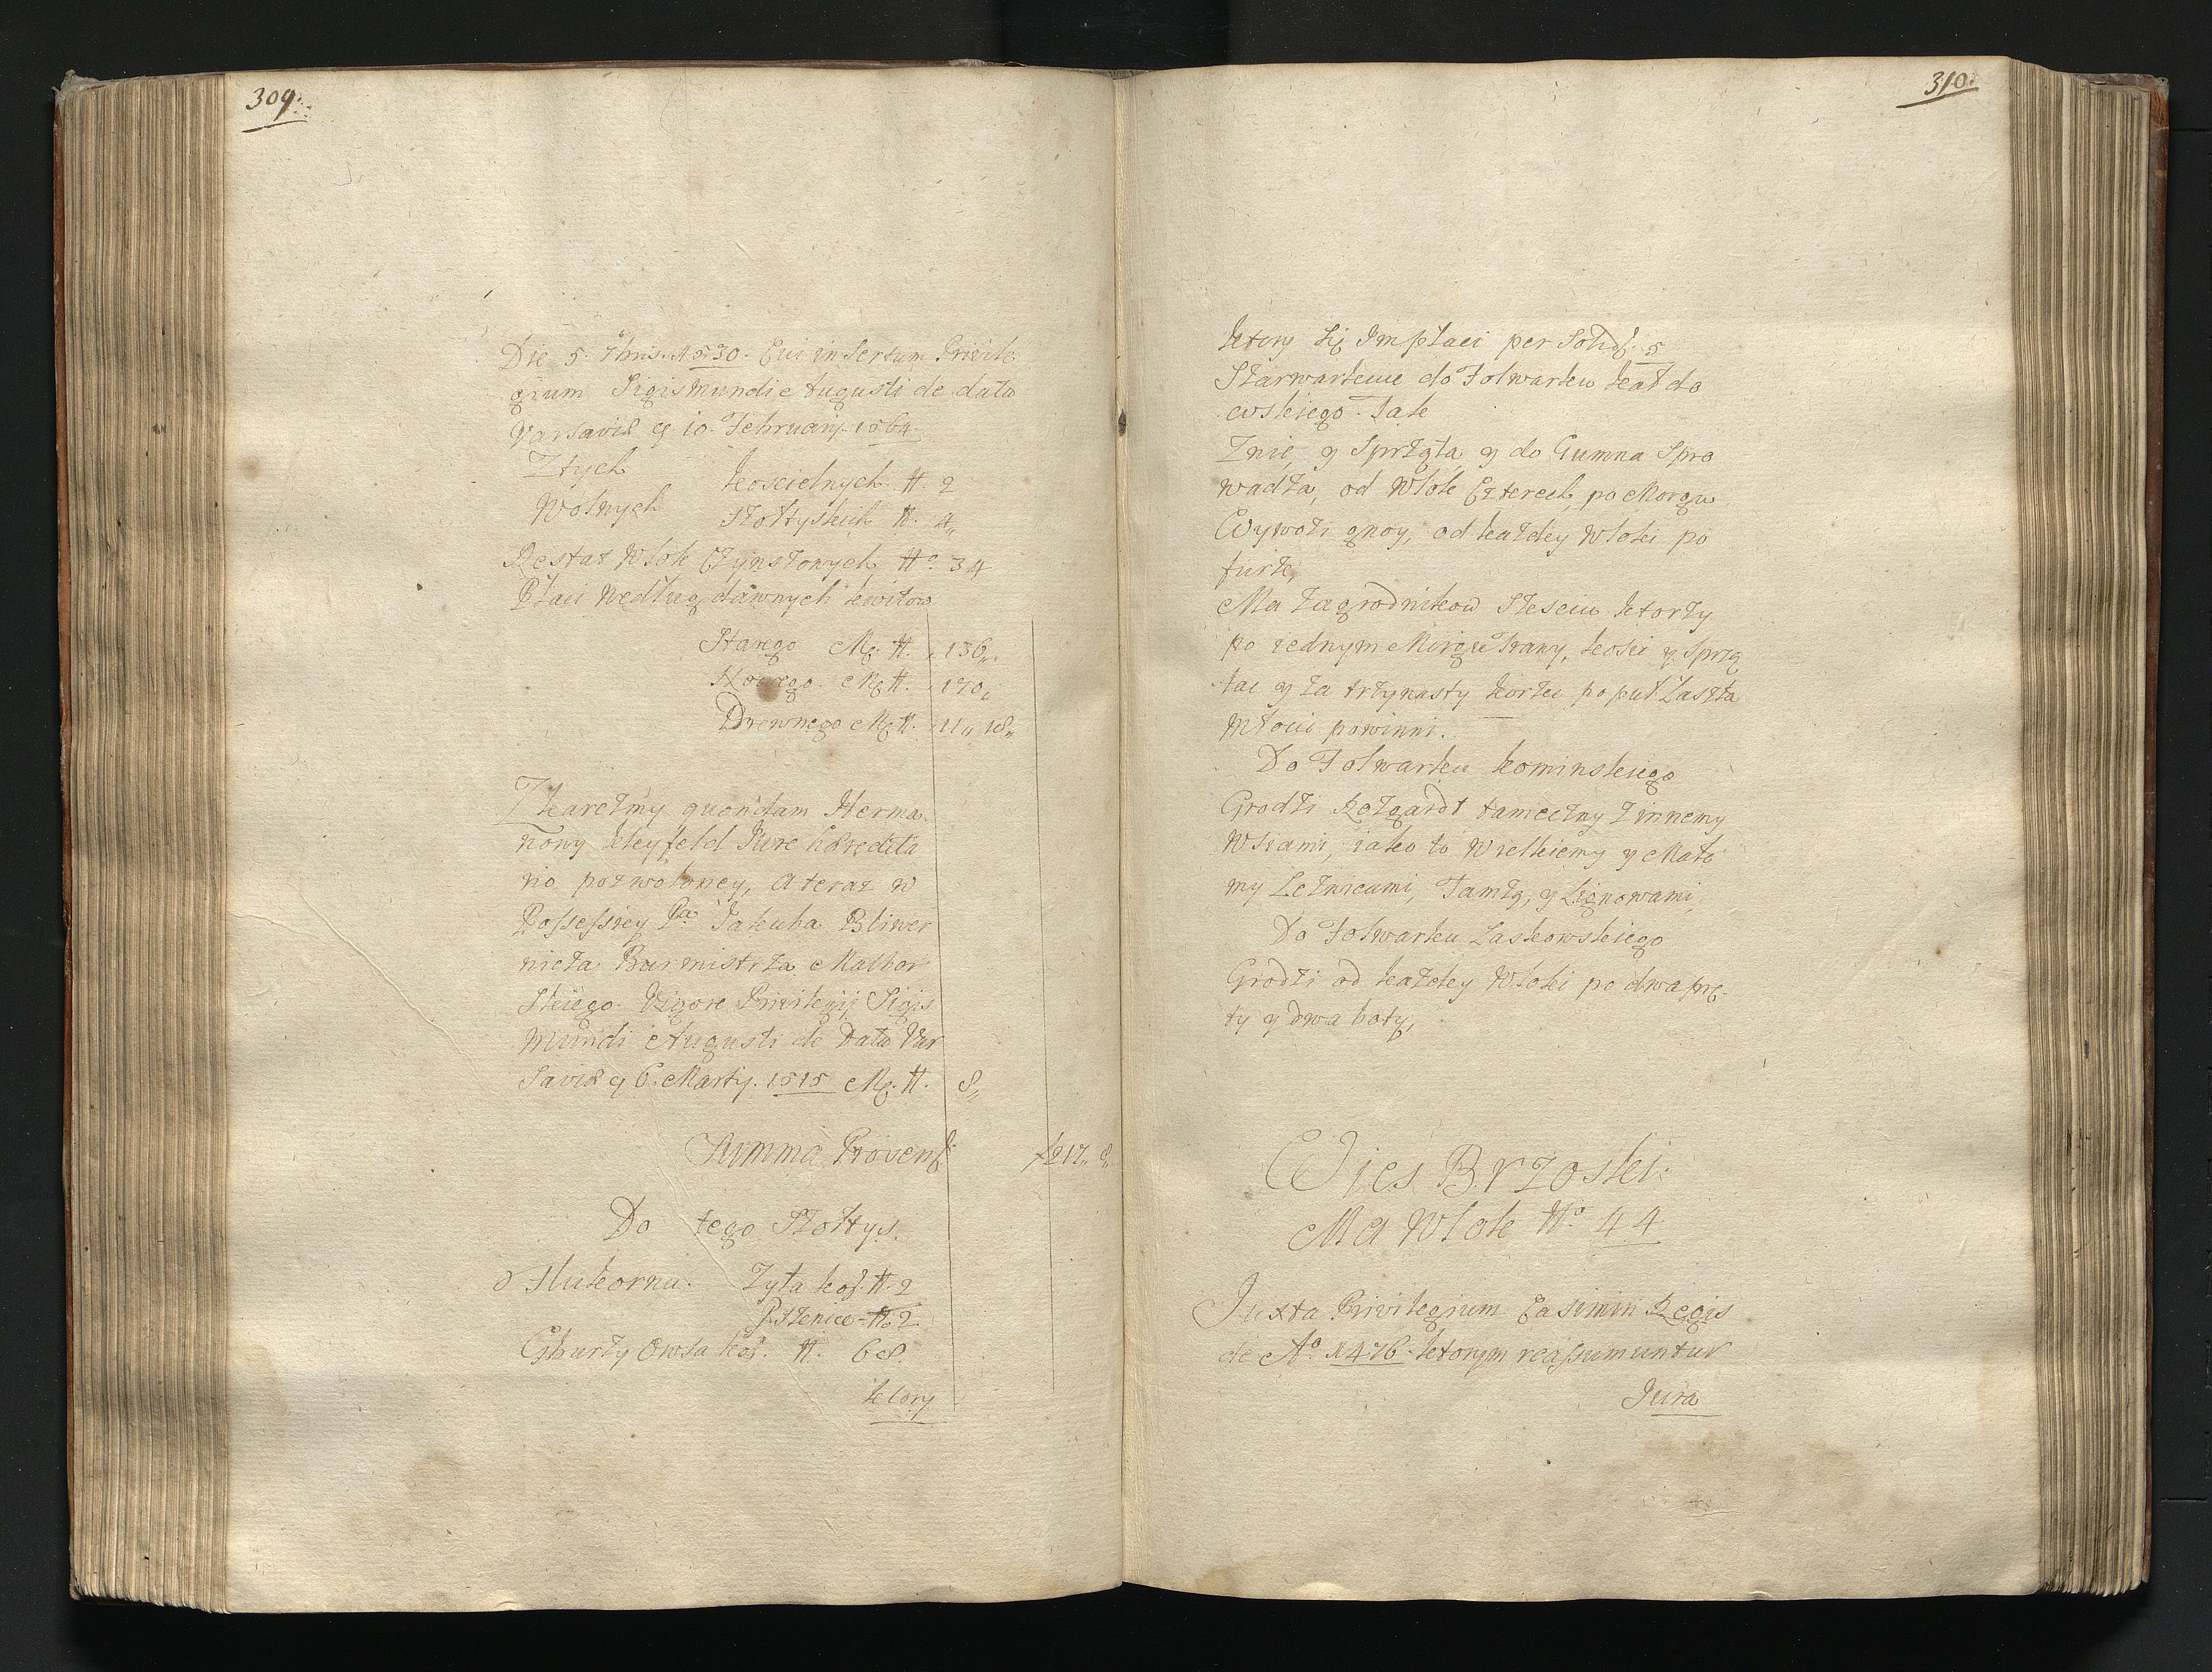 309.
Die 5. 7bris. 1530. Cui insertum Privile
gium Sigismundi Augusti de data
Varsaviæ 10. February. 1564.
Ztych
Wolnych
Koscielnych № 2
Szołtyskich № 4„
Restat Włok Czynszowych №o 34
Płaci Według dawnych kwitow
Starego Mg. №. 136„
Nowego Mg №. 170„
Drewnego Mg №. 11„ 18„
Zkarczmy quondam Herma
nowy Kleyfeld Jure hæredita
rio pozwoloney, a teraz w
Possessiey Pa Jakuba Bliwer
nicza Burmistrza Malbor
skiego Vigore Privilegij Sigis
mundi Augusti de Data Var
saviæ 6. Martij. 1515 Mg. №. 8„
Summa Provent
f217„ 8„
Do tego Szołtys
Słukorna. Zyta kor. №. 2
Pszenice №. 2
Gburzy Owsa kor. №. 68.
ktory
310.
ktory się Im płaci per Solid. 5
Szarwarkuie do Folwarku Kałdo
wskiego Tak
Znie, y Sprzęta y do Gumna Spro
wadza, od Włok Czterech, po Morgu
Wywozi gnoy, od kazdey Włoki po
furze,
Ma Zagrodnikow Szesciu ktorzy
po iednym Morgu Trawy, kosić y Sprzą
tać y za trzynasty korzec po puł Łaszta
Młocić powinni.
Do Folwarku Kominskiego
Grodzi Rozgardt tameczny z innemy
Wsiami, iako to Wielkiemy y Mało
my Leznicami, Tamzą, y Lignowami,
Do Folwarku Laskowskiego
Grodzi od kazdey Włoki po dwa prę-
ty y dwa boty,
Wies Brzoski.
Ma Włok №o 44
Juxta Privilegium Casimiri Regis
de Ao 1476. ktorym reassumuntur
Jura